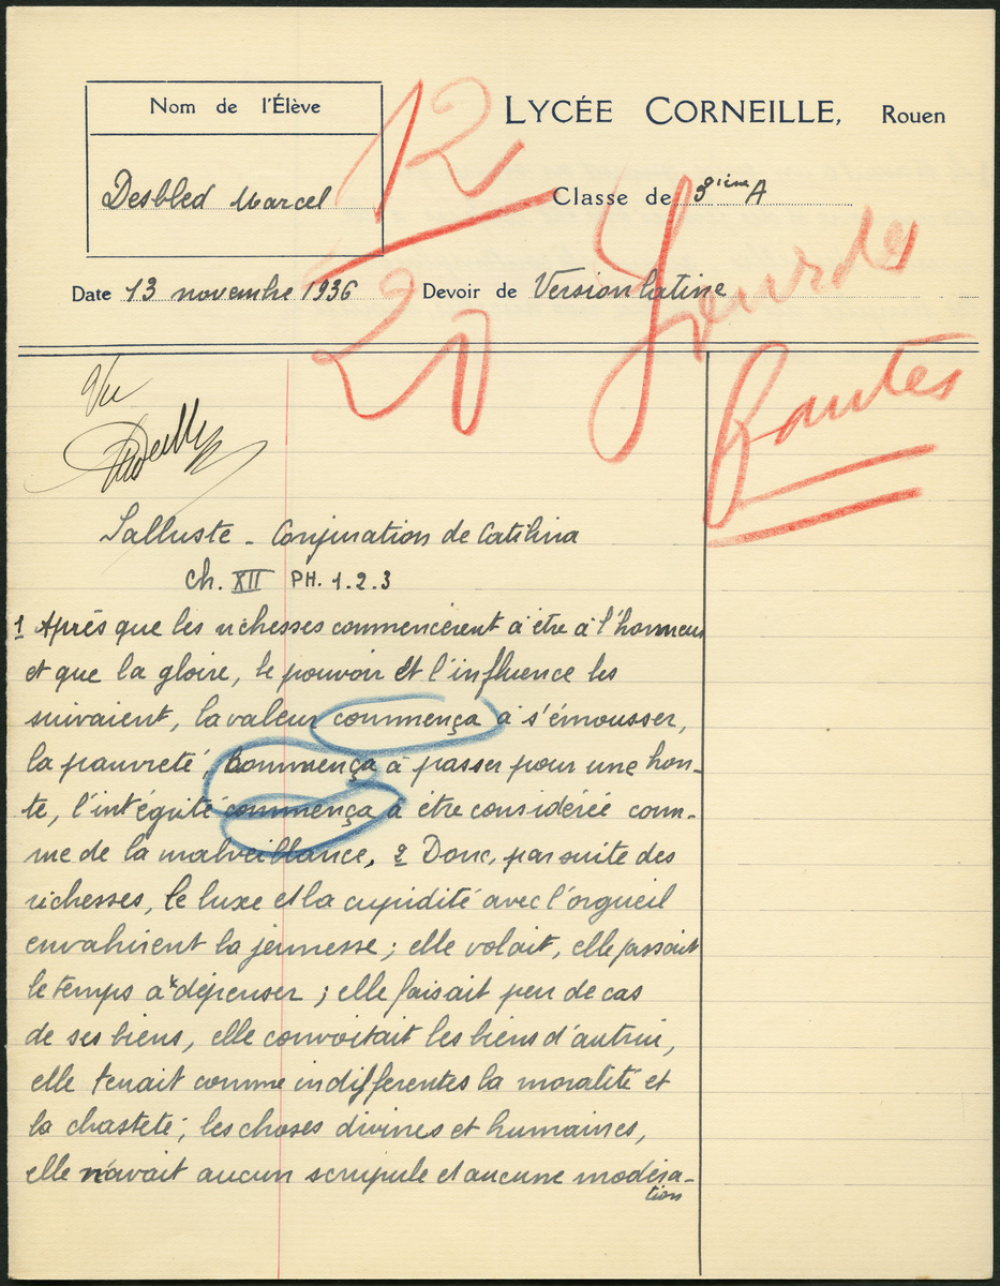 Nom de l'Élève
LYCÉE CORNEILLE, Rouen
Desbled Marcel
12
Classe de 3ième A
20
Date 13 novembre 1936 Devoir de Version latine
Lourdes
fautes
Vu
Salluste - Conjuration de Catilina
ch. XII PH. 1.2.3
1 Après que les richesses commencèrent à être à l'honneur
et que la gloire, le pouvoir et l'influence les
suivaient, la valeur commença à s'émousser,
la pauvreté, commença à passer pour une hon-
te, l'intégrité commença à être considérée com-
me de la malveillance, 2 Donc, par suite des
richesses, le luxe et la cupidité avec l'orgueil
envahirent la jeunesse ; elle volait, elle passait
le temps à dépenser ; elle faisait peu de cas
de ses biens, elle convoitait les biens d'autrui,
elle tenait comme indifférentes la moralité et
la chasteté ; les choses divines et humaines,
elle n'avait aucun scrupule et aucune modéra-
tion